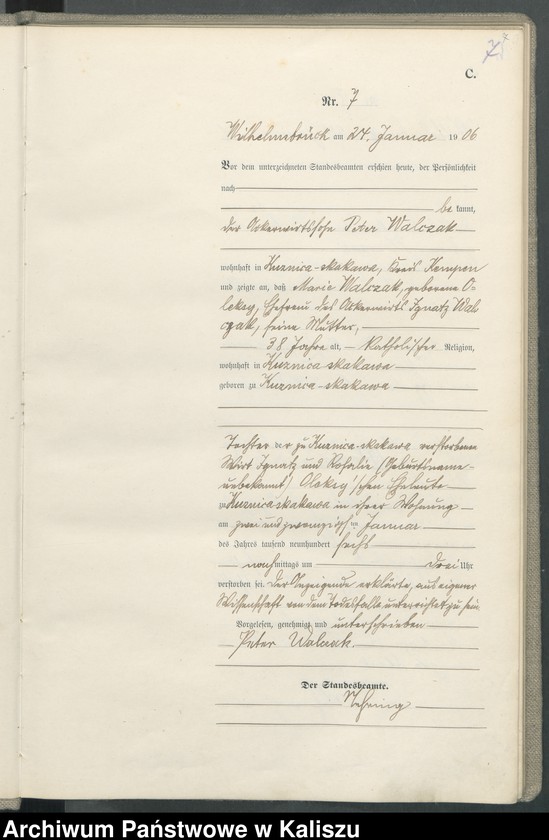 7
C.
Nr. 7
Wilhelmsbrück am 24. Januar 1906
Vor dem unterzeichneten Standesbeamten erschien heute, der Persönlichkeit
nach
be kannt,
der Ackerwirtssohn Peter Walczak
wohnhaft in Kuznica-skakawa, Kreis Kempen
und zeigte an, daß Marie Walczak, geborene O-
leksy, Ehefrau des Ackerwirts Ignatz Wal
czak, seine Mutter,
38 Jahre alt, katholischer Religion,
wohnhaft in Kuznica skakawa
geboren zu Kuznica-skakawa
Tochter der zu Kuznica-skakawa verstorbenen
Wirt Ignatz und Rosalie (Geburtsname
unbekannt) Oleksy'schen Eheleute
zu Kuznica skakawa in ihrer Wohnung
am zwei und zwanzigsten Januar
des Jahres tausend neunhundert sechs
nachmittags um drei Uhr
verstorben sei. Der Anzeigende erklärte, aus eigener
Wissenschaft von dem Todesfalle unterrichtet zu sein
Vorgelesen, genehmigt und unterschrieben
Peter Walczak.
Der Standesbeamte.
Nehring
Archiwum Państwowe w Kaliszu